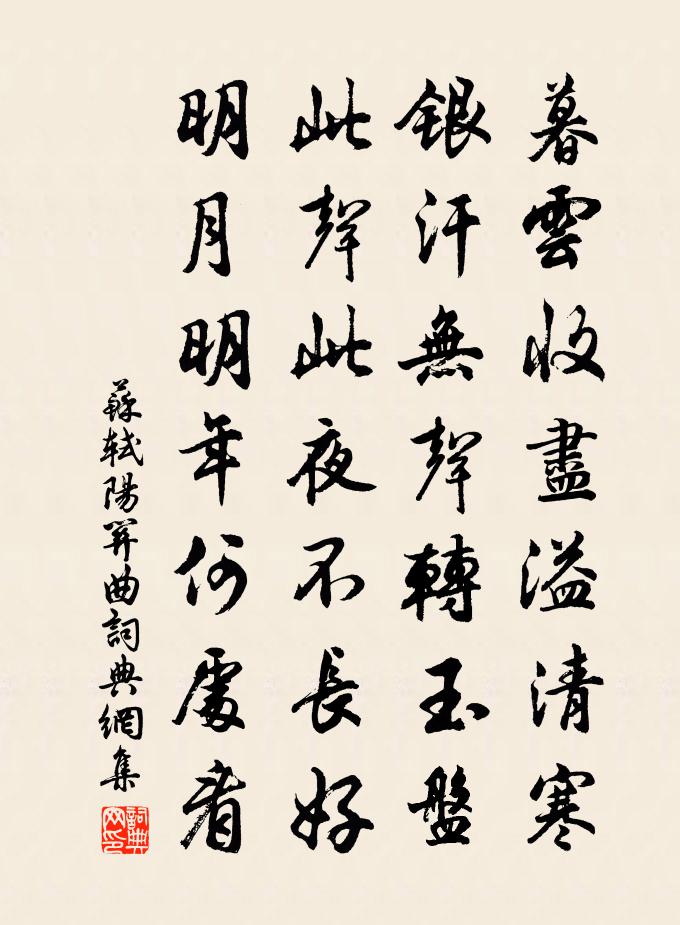 暮雲收盡溢清寒
銀汗無聲轉玉盤
此聲此夜不長好
明月明年何處看
蘇軾陽関曲詞典網集
詞典
网印